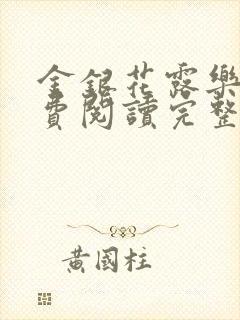 金銀花露樂
費閱讀完整
黃國柱